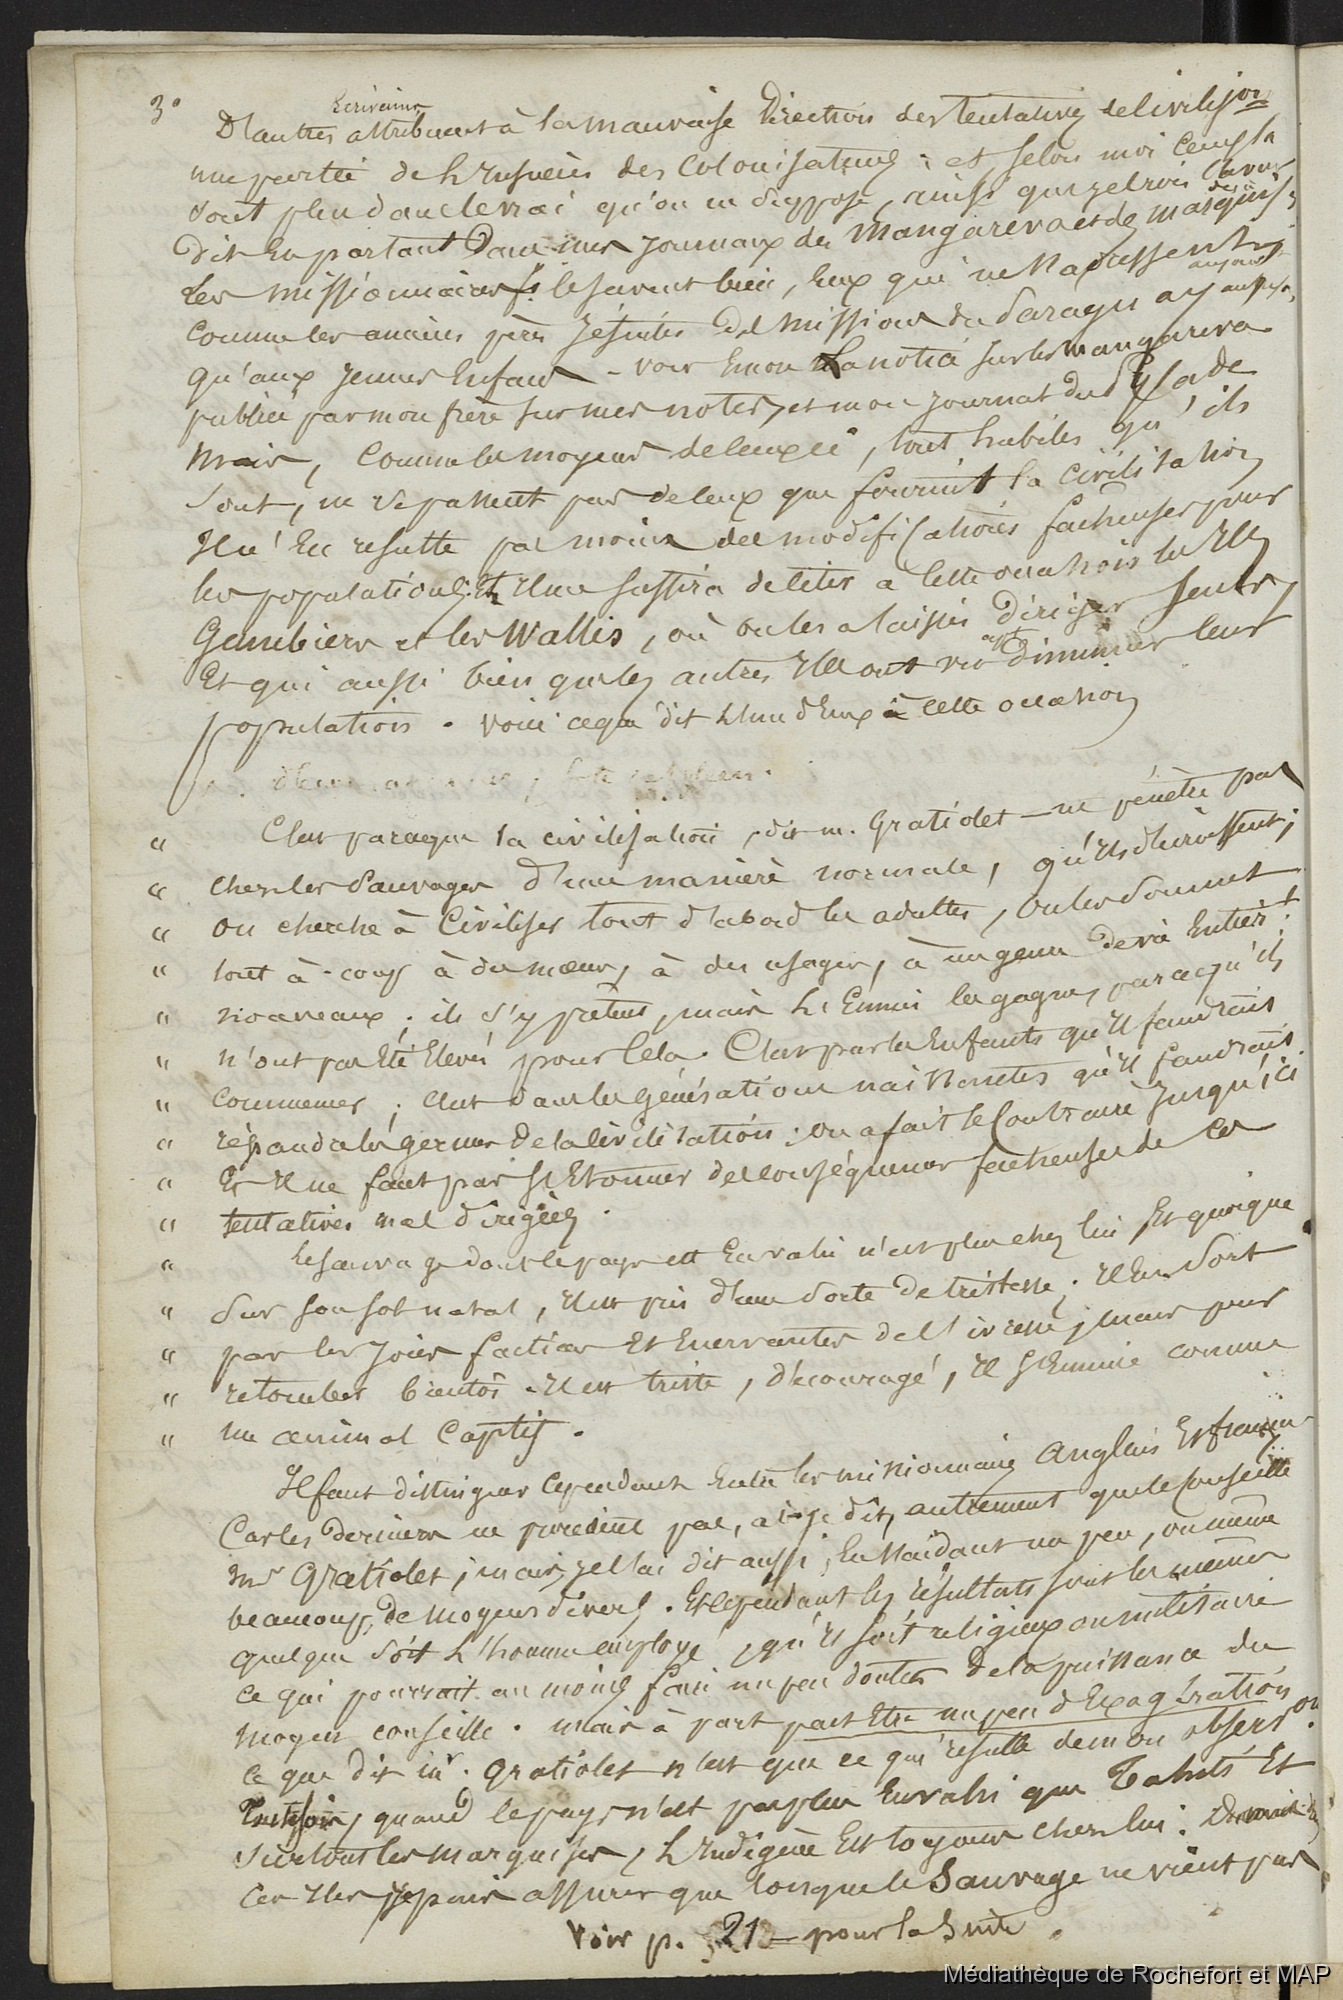 3°
Ecrivains
D'autres attribuent à la mauvaise Direction des tentatives de civilis^on
une partie de l'insuccès des Colonisateurs ; et selon moi ceux la
sont plus dans le vrai qu'on ne suppose, ainsi que je crois l'avoir
Dit en partant Dans mes journaux des Mangareva et des Marquises ;
Les missionnaires le savent bien, eux qui ne s'adressent
comme les anciens pères Jésuites des missions du Paraguay
qu'aux jeunes Enfans - voir mon La notice sur les mangareva
publiée par mon frère sur mes notes, et mon journal du Pylade
Mais, comme les moyens de ceux ci, tout habiles qu'ils
sont, ne séparent pas de ceux que fournit la civilisation
Il n'en resulte pas moins des modifications facheuses pour
les populations ; Et Il me suffira de citer a cette occasion les Iles
Gambiers et les Wallis, où on les a laissés Diriger seuls,
Et qui aussi bien que les autres Iles ont vu diminuer leur
population . Voici ce que dit l'un d'eux à cette occasion
" C'est parceque la civilisation, dit m. Gratiolet — ne pénètre pas
" chez les Sauvages d'une manière normale, qu'ils dépérissent ;
" on cherche à Civiliser tout d'abord les adultes, on les soumet
" tout à coup à des mœurs, à des usages, à un genre de vie Entier^t
" nouveaux ; ils s'y prêtent, mais l'Ennui les gagne, parcequ'ils
" n'ont pas Eté Elevés pour cela. C'est par les Enfants qu'il faudrait
" commencer ; c'est dans les générations naissantes qu'il faudrait
" répandre les germes de la civilisation : on a fait le contraire jusqu'ici
" Et Il ne faut pas s'Etonner des conséquences facheuses de ces
" tentatives mal dirigées .
" Le sauvage dont le pays est Envahi n'est plus chez lui Et quoique
" sur son sol natal, Il est pris d'une sorte de tristesse ; Il en sort
" par les joies factices Et Enervantes de l'ivresse, mais pour
" retomber bientôt . Il est triste, découragé, Il s'Ennuie comme
" un animal Captif .
Il faut distinguer cependant Entre les missionnaires Anglais Et français
Car les derniers ne procèdent pas, ai-je dit, autrement que le conseille
M^r Gratiolet ; mais, je l'ai dit aussi, En s'aidant un peu, ou même
beaucoup, de moyens divers . Et cependant les résultats sont les mêmes
quelque soit l'homme employé, qu'il soit religieux ou militaire
ce qui pourrait au moins faire un peu douter de la puissance du
moyen conseillé . Mais à part peut Etre un peu d'Exagération
ce que dit m^r. Gratiolet n'est que ce qui résulte de mon observ^on .
Toutefois, quand le pays n'est pas plus Envahi que Tahiti Et
surtout les Marquises, l'Indigène Est toujours chez lui.
ces Iles je puis assurer que lorsque le Sauvage ne vient pas
Voir p. 21 — pour la Suite .
Médiathèque de Rochefort et MAP